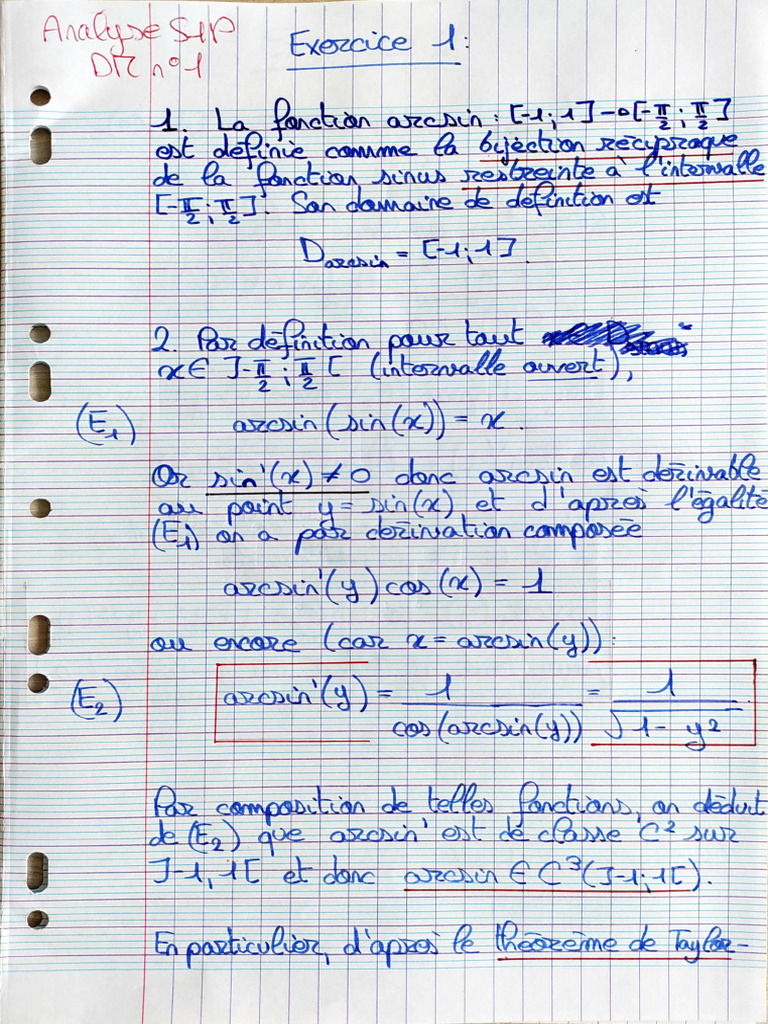 Analyse S4P
DM n°1
Exercice 1:
1. La fonction arcsin : [-1; 1] → [-π/2 ; π/2]
est définie comme la bijection réciproque
de la fonction sinus restreinte à l'intervalle
[-π/2 ; π/2]. Son domaine de définition est
D_arcsin = [-1; 1].
2. Par définition pour tout
x ∈ ]-π/2 ; π/2[ (intervalle ouvert),
(E₁) arcsin(sin(x)) = x.
Or sin'(x) ≠ 0 donc arcsin est dérivable
au point y = sin(x) et d'après l'égalité
(E₁) on a par dérivation composée
arcsin'(y) cos(x) = 1
ou encore (car x = arcsin(y)):
(E₂) arcsin'(y) = 1/cos(arcsin(y)) = 1/√(1 - y²)
Par composition de telles fonctions, on déduit
de (E₂) que arcsin' est de classe C² sur
]-1, 1[ et donc arcsin ∈ C³(]-1; 1[).
En particulier, d'après le théorème de Taylor-